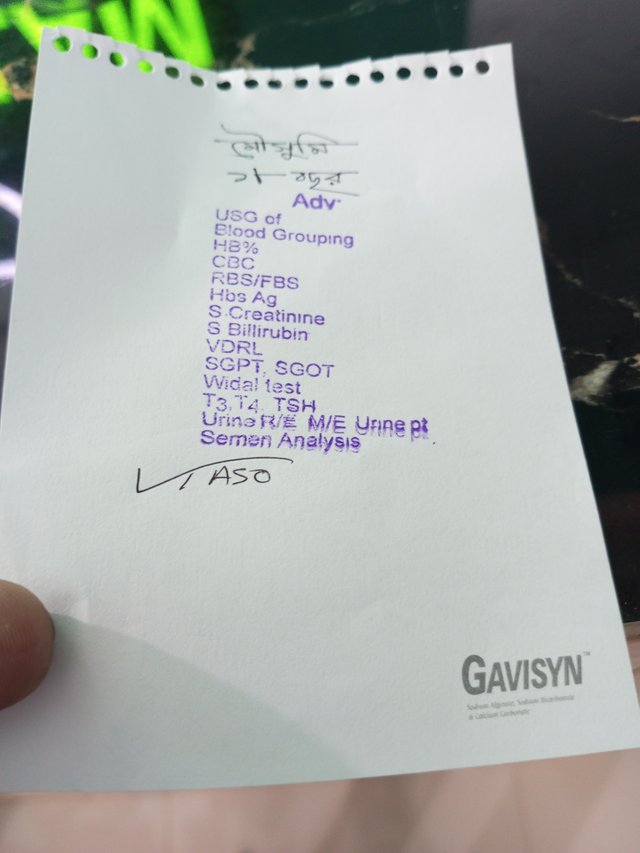 মৌসুমি
২১ বছর
Adv·
USG of
Blood Grouping
HB%
CBC
RBS/FBS
Hbs Ag
S.Creatinine
S Billirubin
VDRL
SGPT, SGOT
Widal test
T3,T4, TSH
Urine R/E M/E Urine pt
Semen Analysis
ASO
GAVISYN™
Sodium Alginate, Sodium Bicarbonate
& Calcium Carbonate